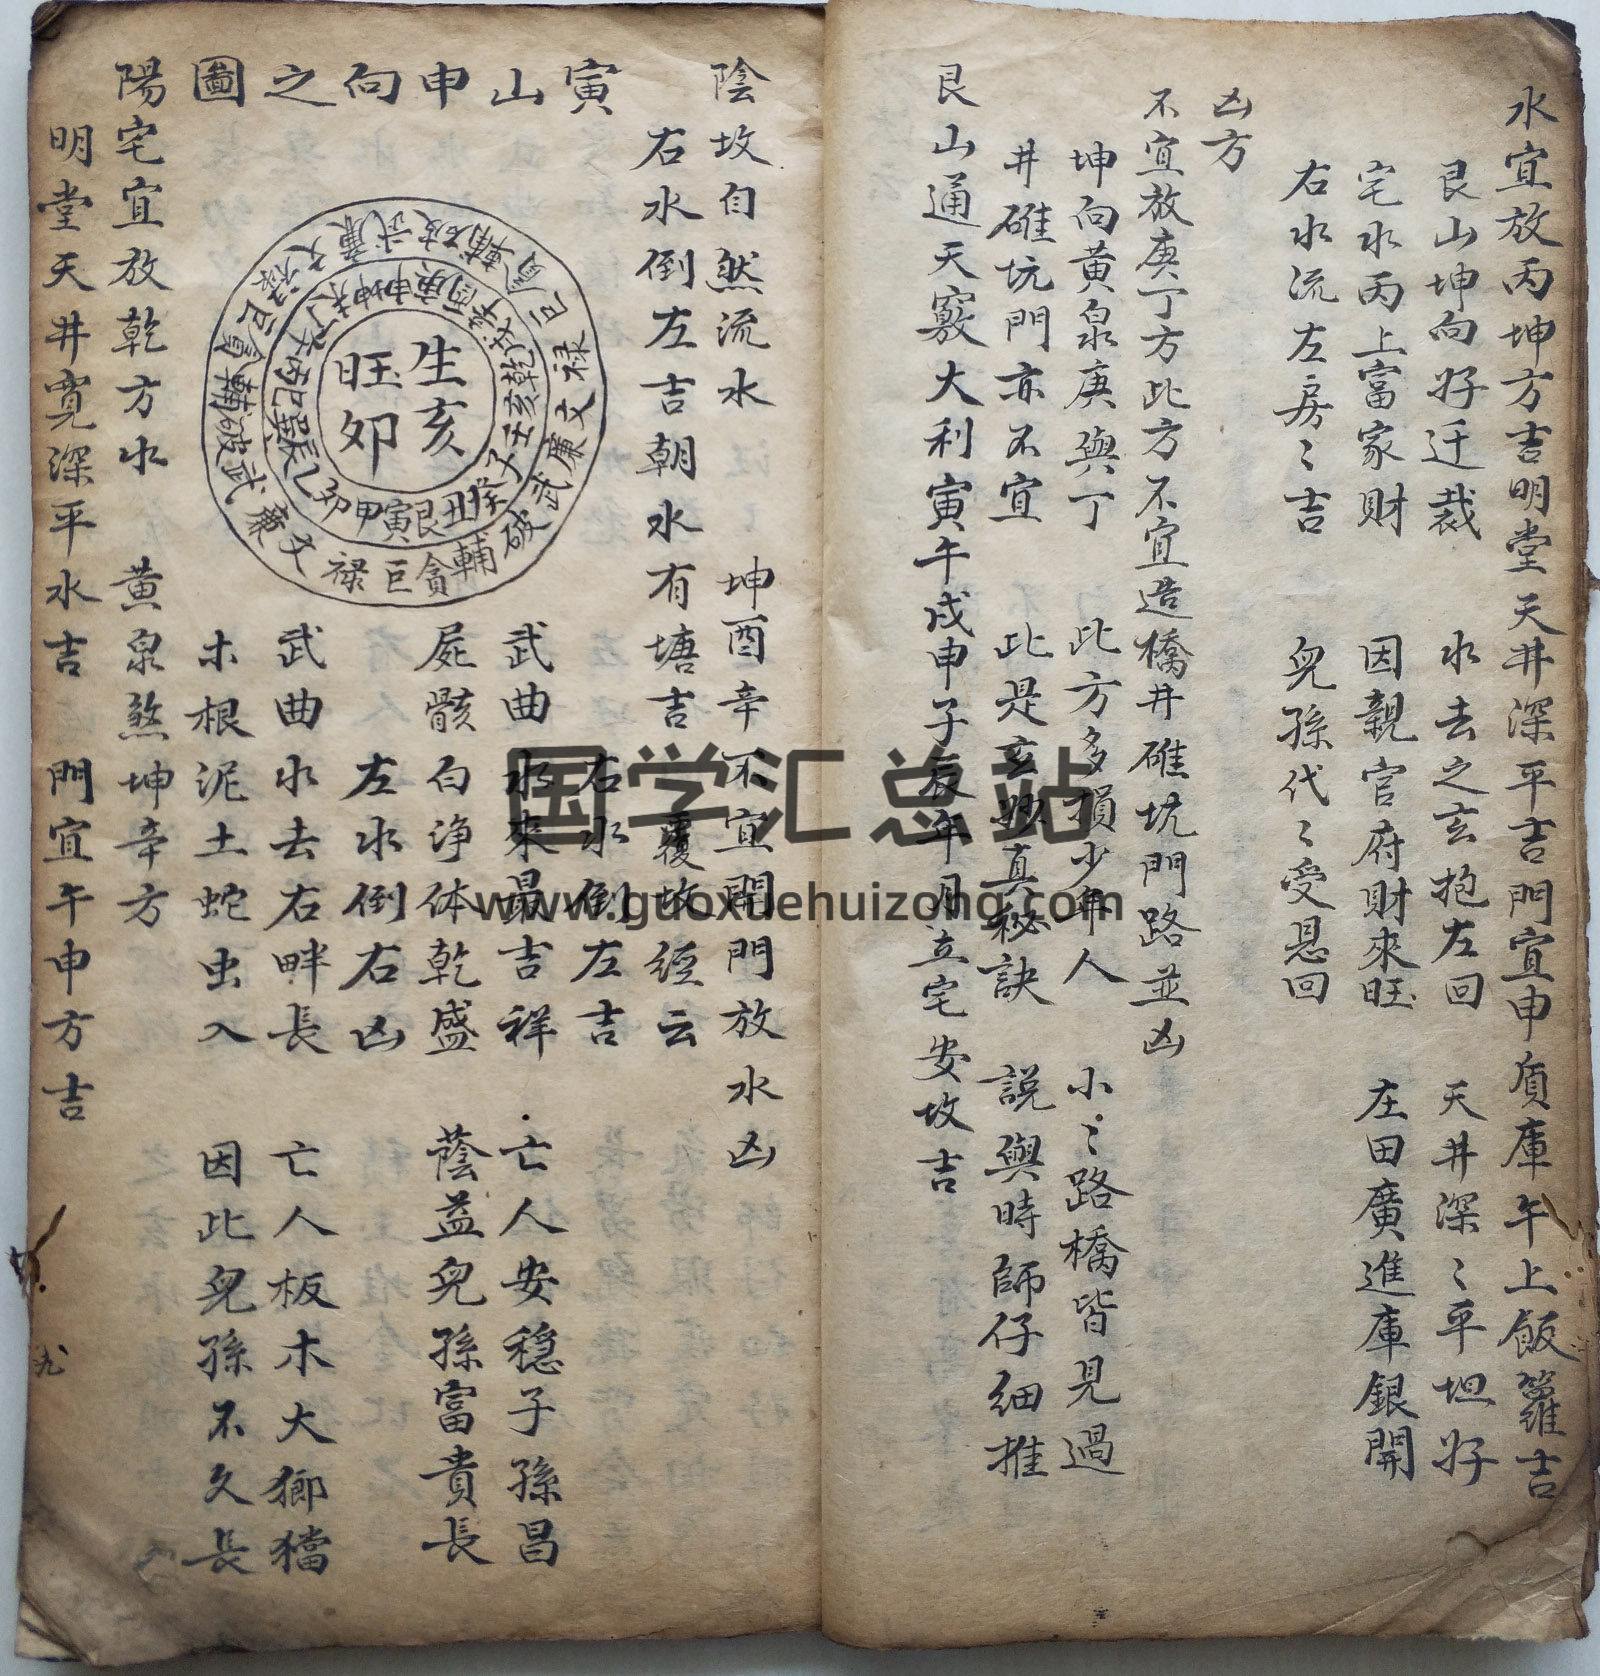 水宜放丙坤方吉明堂天井深平吉門宜申庚庫午上飯籮吉
艮山坤向好迁裁 水去之玄抱左回 天井深〻平坦好
宅水丙上富家財 因親官府財來旺 庄田廣進庫銀開
右水流左房〻吉 兒孫代〻受恩回
凶方
不宜放庚丁方此方不宜造橋井碓坑門路並凶
坤向黄泉庚與丁 此方多損少年人 小〻路橋皆見過
井碓坑門亦不宜 此是玄妙真秘訣 說與時師仔細推
艮山通天竅大利寅午戌申子辰年月立宅安坟吉
陰坟自然流水 坤酉辛不宜開門放水凶
右水倒左吉朝水有塘吉 覆坟經云
右水倒左吉
寅山申向之圖
武曲水來最吉祥 亡人安穩子孫昌
屍骸白淨体乾盛 蔭益兒孫富貴長
左水倒右凶
武曲水去右畔長 亡人板木大鄉檔
木根泥土蛇虫入 因此兒孫不久長
生亥
旺卯
乾亥壬子癸丑艮寅甲卯乙辰巽巳丙午丁未坤申庚酉辛戌
祿文廉武破輔貪巨祿文廉武破輔貪巨祿文廉武破輔貪巨
陽宅宜放乾方水 黄泉煞坤辛方
明堂天井寬深平水吉 門宜午申方吉
九
国学汇总站
www.guoxuehuizong.com